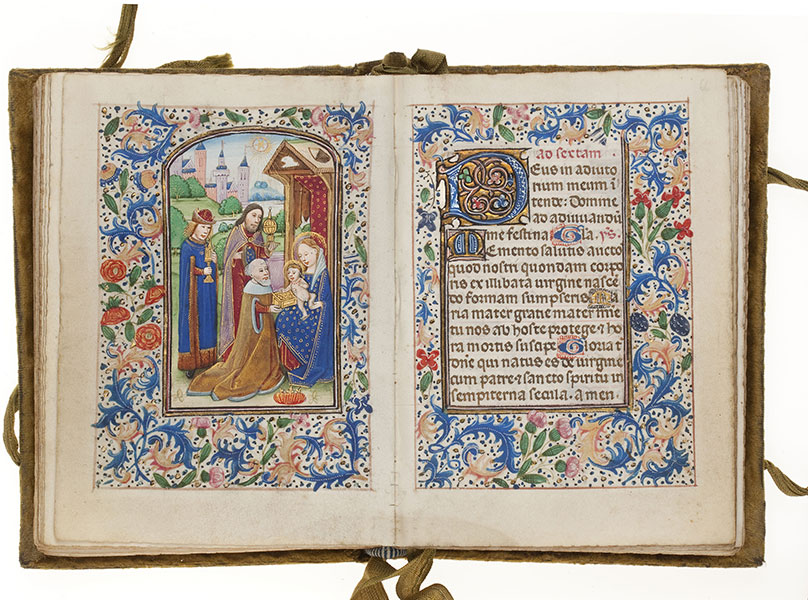 ad sextam
Deus in adiuto
rium meum i
tende: Domine
ad adiuuandū
me festina Gła. ps.
Memento salutis aucto
quod nostri quondam corpo
ris ex illibata virgine nascē
do formam sumpseris Ma
ria mater gratie mater mīe
tu nos ab hoste protege ⁊ ho
ra mortis suscipe Gloria t
domine qui natus es de virgine
cum patre ⁊ sancto spiritu in
sempiterna secula. amen.